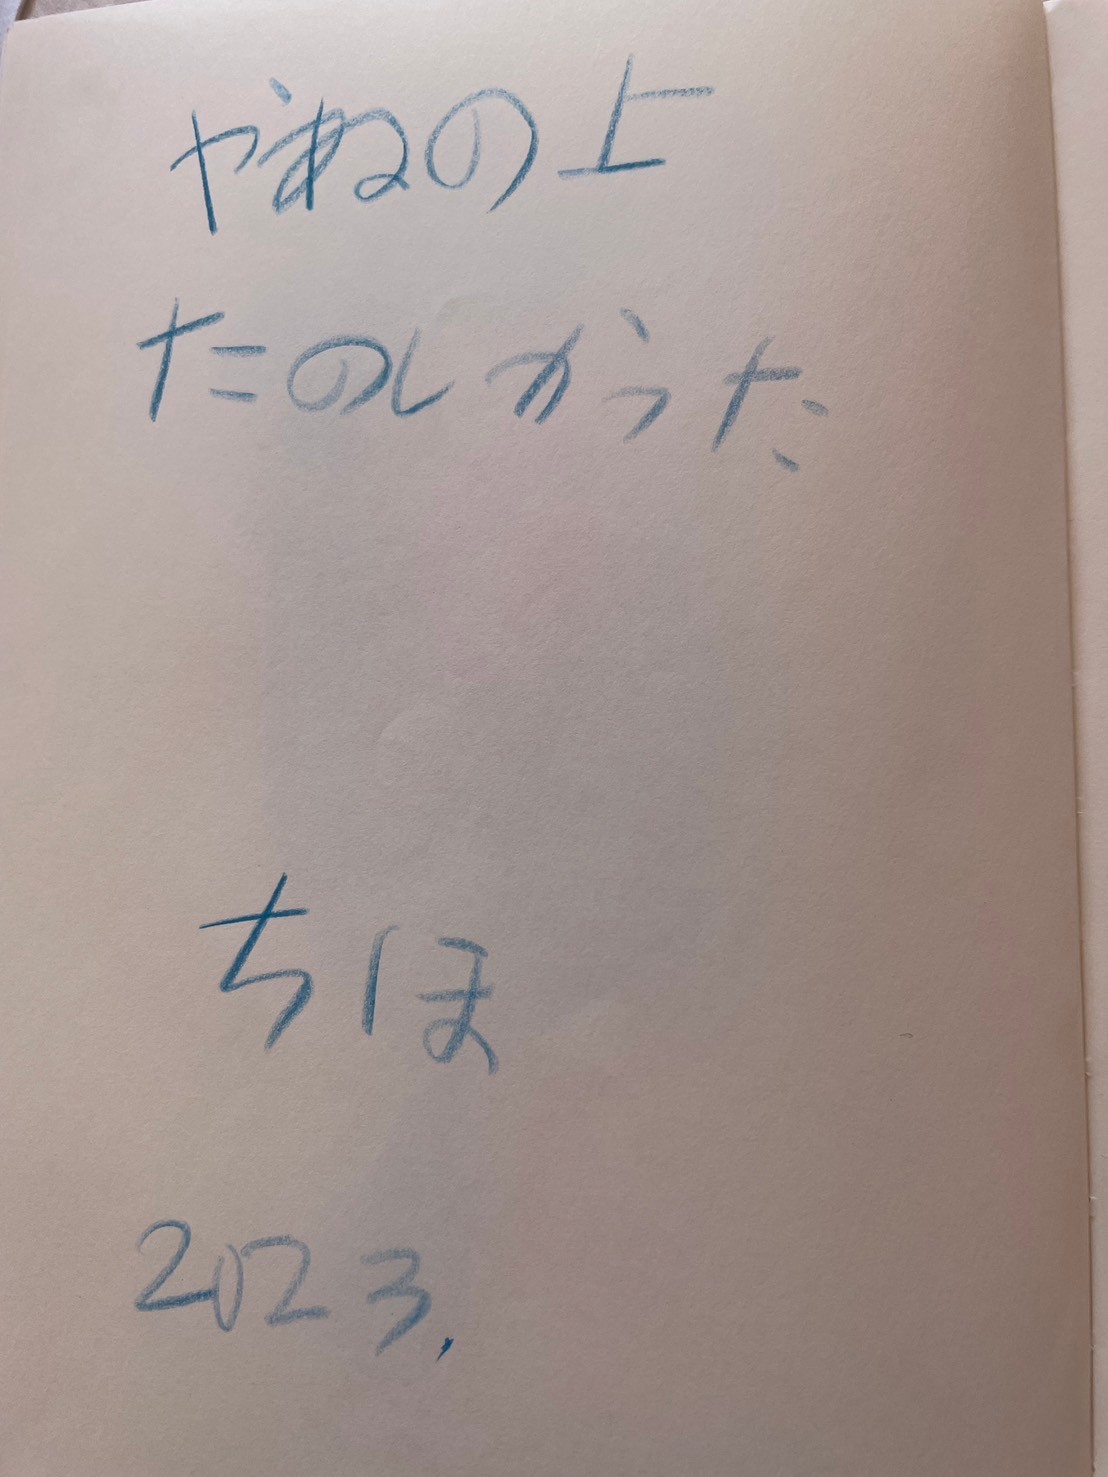 やねの上
たのしかった
ちほ
2023.